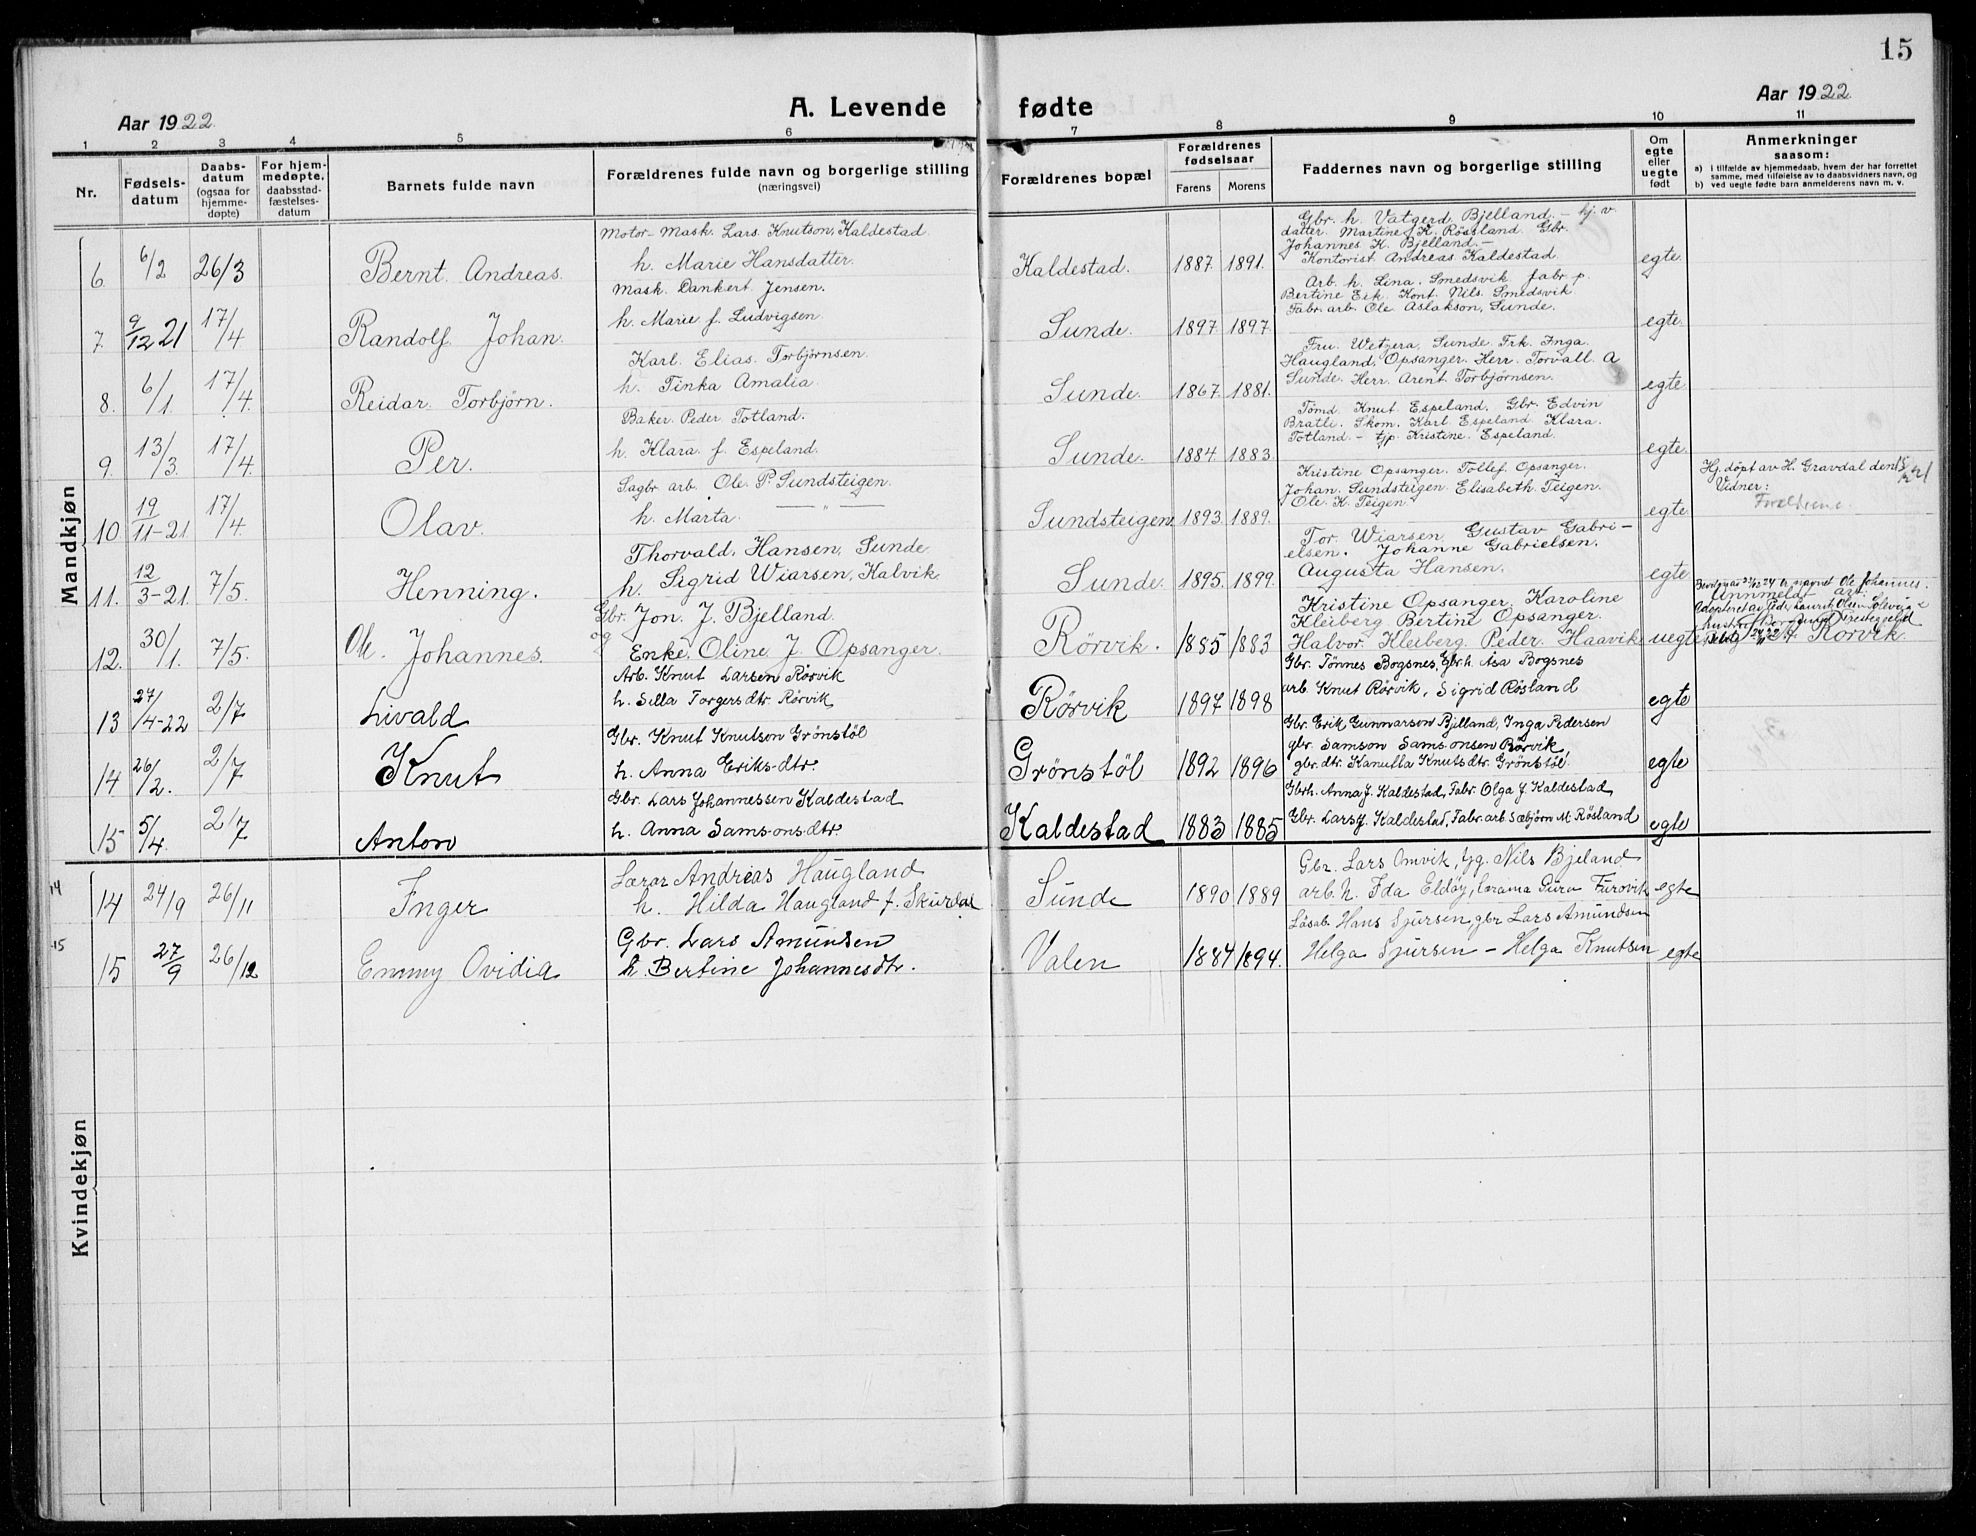 15
Aar 1922.
A. Levende fødte
Aar 1922.
1 2 3 4 5 6 7 8 9 10 11
Nr.
Fødselsdatum
Daabsdatum (ogsaa for hjemmedøpte)
For hjemmedøpte, daabsstadfæstelsesdatum
Barnets fulde navn
Forældrenes fulde navn og borgerlige stilling (næringsvei)
Forældrenes bopæl
Forældrenes fødselsaar
Farens Morens
Faddernes navn og borgerlige stilling
Om egte eller uegte født
Anmerkninger saasom:
a) i tilfælde av hjemmedaab, hvem der har forrettet samme, med tilføielse av to daabsvidners navn, og
b) ved uegte fødte barn anmelderens navn m. v.
Mandkjøn
6. 6/2 26/3 Bernt Andreas.
Motor-Mask. Lars Knutson, Kaldestad.
h. Marie Hansdatter.
Kaldestad. 1887. 1891.
Gbr. h. Vatgerd Bjelland. - hj. v.
datter. Martine K. Røssland Gbr.
Johannes K. Bjelland. -
Kontorist Andreas Kaldestad
egte.
7. 9/12 21 17/4 Randolf Johan.
Mask. Dankert Jensen.
h. Marie f. Ludvigsen.
Sunde. 1897. 1897.
Arb. h. Lina. Smedsvik fabr. p.
Bertine Eik. Kont. Nils. Smedsvik
Fabr. arb. Ole Aslakson, Sunde.
egte.
8. 6/1. 17/4. Reidar Torbjørn.
Karl Elias Torbjørnsen.
h. Tinka Amalia.
Sunde. 1867. 1881.
Fru. Wetzera, Sunde. Frk. Inga.
Haugland, Opsanger. Herr. Torvall. A
Sunde. Herr. Arent Torbjørnsen.
egte.
9. 13/3. 17/4. Per.
Baker Peder Totland.
h. Klara f. Espeland.
Sunde. 1884. 1883.
Tømd Knut Espeland. Gbr. Edvin
Bratli. Skom. Karl Espeland Klara.
Totland - tjp. Kristine. Espeland.
egte.
10 19/11-21 17/4. Olav.
Sagbr. arb. Ole. P. Sundsteigen.
h. Marta. — " —
Sundsteigen. 1893. 1889.
Kristine Opsanger. Tollef. Opsanger.
Johan. Sundsteigen. Elisabeth. Teigen.
Ole. K. Teigen.
egte
Hj. døpt av H. Gravdal den
Vidner:
Forældrene.
11. 12/3-21. 7/5. Henning.
Thorvald. Hansen, Sunde.
h. Sigrid Wiarsen, Kalvik.
Sunde. 1895. 1899.
Tor. Wiarsen, Gustav Gabri-
elsen. Johanne Gabrielsen.
Augusta Hansen.
egte
12. 30/1. 7/5. Ole. Johannes.
Gbr. Jon. J. Bjelland.
og Enke. Oline J. Opsanger.
Rørvik. 1885 1883
Kristine Opsanger. Karoline
Kleiberg Bertine Opsanger.
Halvor. Kleiberg. Peder. Haavik
uegte
navnet Ole Johannes.
Annmeldt av:
Adopteret av Peder Laurits Olsen
hustru
Rørvik.
13 27/4-22 2/7 Livald
Arb. Knut Larsen Rørvik
h. Silla Torgersdtr. Rørvik
Rørvik 1897 1898
Gbr. Tønnes Bogsnes, Gbr.h. Åsa Bogsnes
arb. Knut Rørvik, Sigrid Røsland
egte
14. 26/2. 2/7 Knut
Gbr. Knut Knutson Grønstøl
h. Anna Eriksdtr.
Grønstøl 1892 1896
Gbr. Erik Gunnarson Bjelland, Inga Pedersen
gbr. Samson Samsonsen Rørvik,
gbr.dtr. Kanutta Knutsdtr. Grønstøl.
egte
15 5/4. 2/7 Anton
Gbr. Lars Johannessen Kaldestad
h. Anna Samsonsdtr.
Kaldestad 1883 1885
Gbrh. Anna J. Kaldestad, Fabr. Olga J Kaldestad
Gbr. Lars J. Kaldestad, Fabr. arb. Sæbjørn M. Røsland
egte
Kvindekjøn
14 14 24/9 26/11 Inger
Lærer Andreas Haugland
h. Hilda Haugland f. Skurdal
Sunde 1890 1889
Gbr. Lars Omvik, Nils Bjeland
arb. h. Ida Eldøy, Guru Furovik
egte
15 15 27/9 26/12 Emmy Ovidia
Gbr. Lars Amundsen
h. Bertine Johannesdtr.
Valen 1884 1894.
Løsab. Hans Sjursen, gbr Lars Amundsen
Helga Sjursen - Helga Knutsen
egte